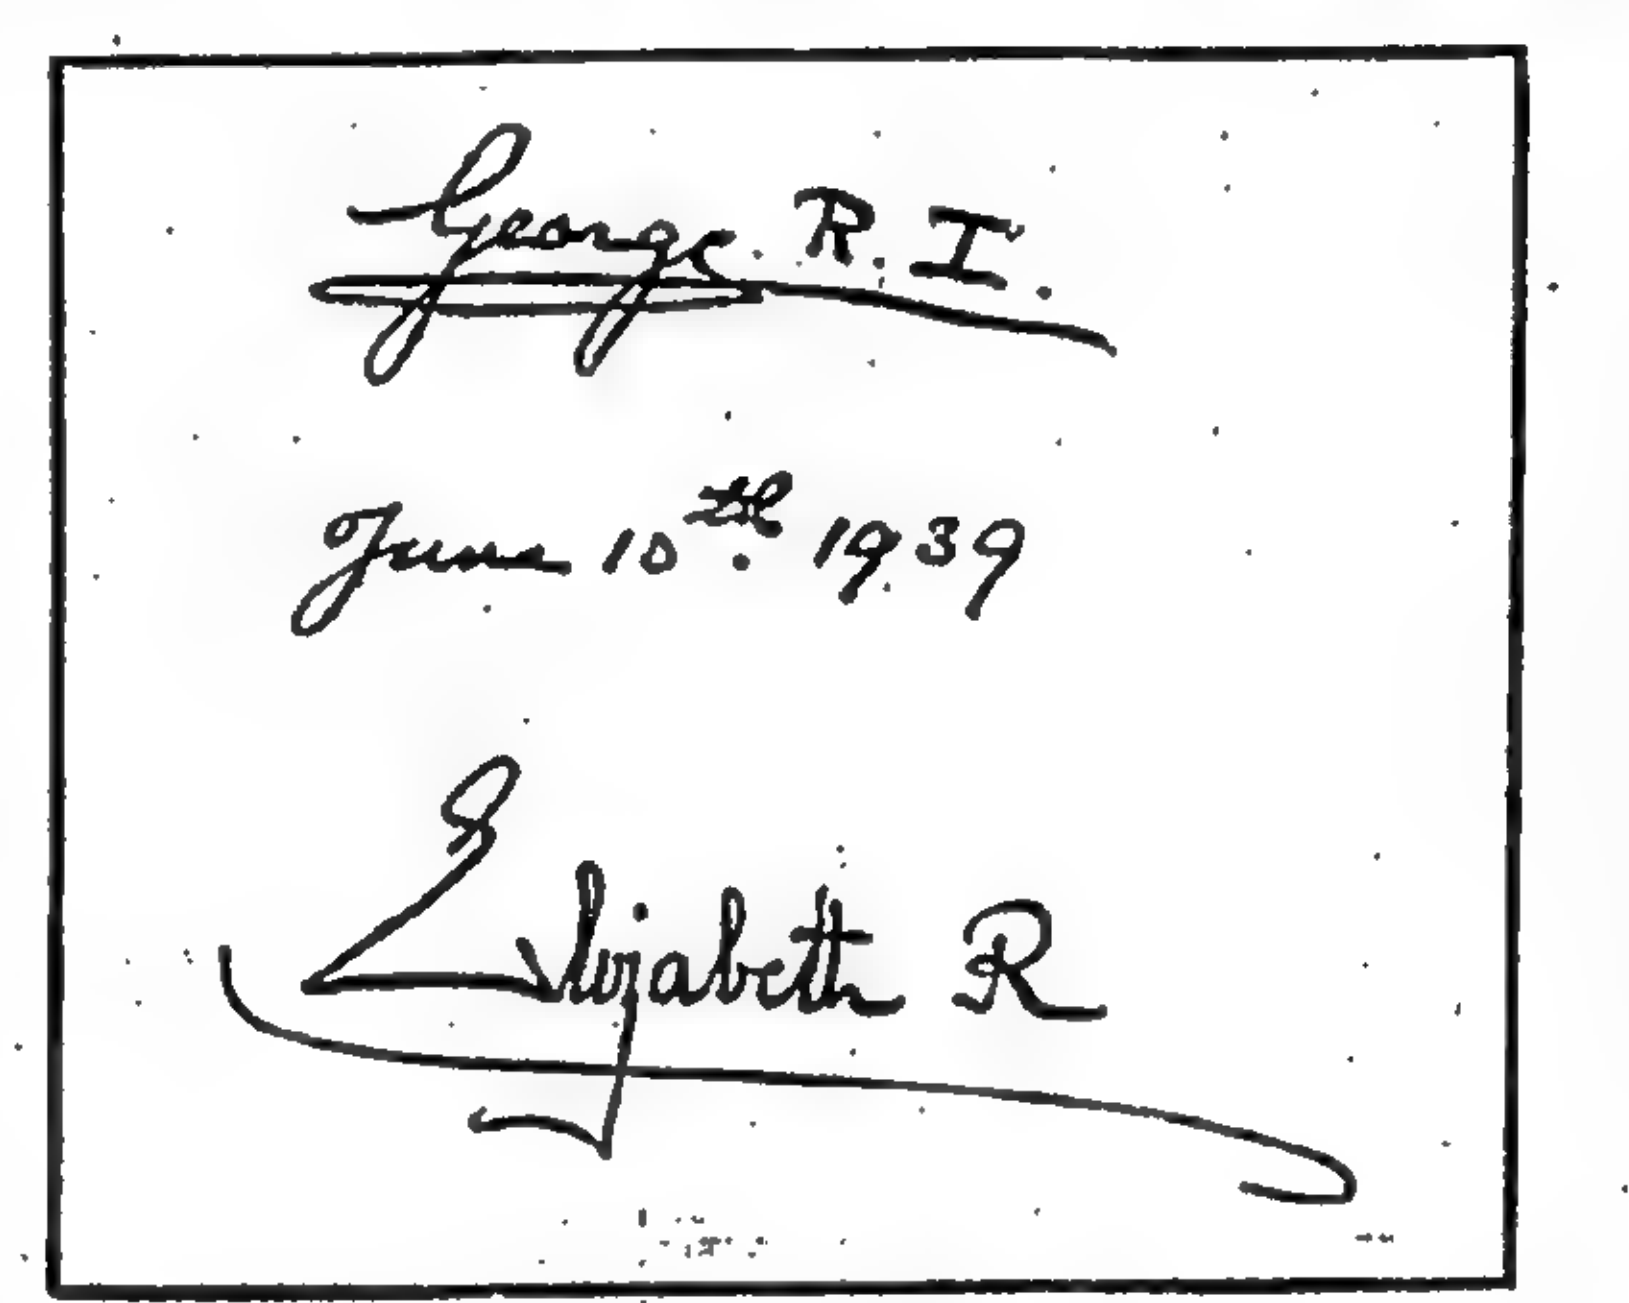 George. R. I.
June 10th. 1939
Elizabeth R